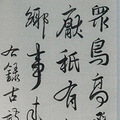 眾鳥高
厭祇有
鄉事未
右錄古詩